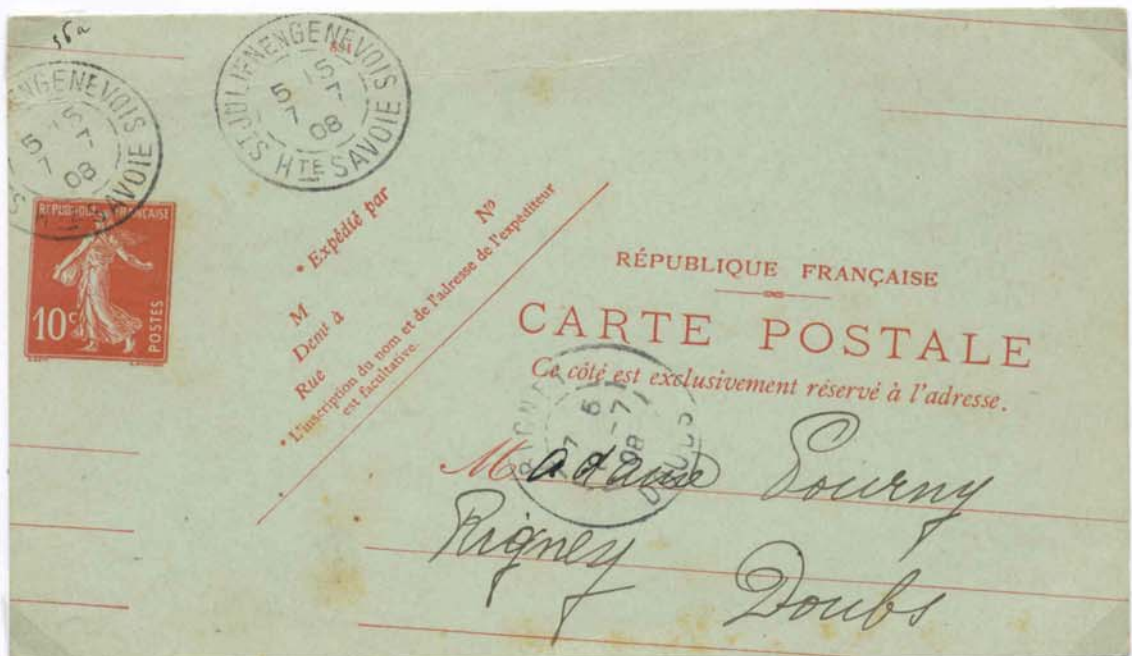 56a
ST JULIEN EN GENEVOIS
15
5 7
08
HTE SAVOIE
ENGENEVOIS
15
5
7
08
SAVOIE
RÉPUBLIQUE FRANÇAISE
10c
POSTES
* Expédié par
No
M
Demt à
Rue
* L'inscription du nom et de l'adresse de l'expéditeur
est facultative.
RÉPUBLIQUE FRANÇAISE
CARTE POSTALE
Ce côté est exclusivement réservé à l'adresse.
DOUBS
Madame
Rigney
Doubs